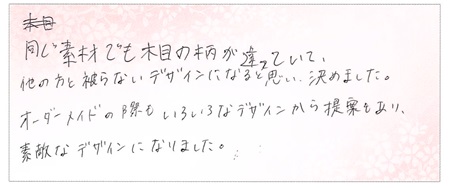 同じ素材でも木目の柄が違っていて、
他の方と被らないデザインになると思い、決めました。
オーダーメイドの際も いろいろなデザインから提案もあり、
素敵なデザインになりました。